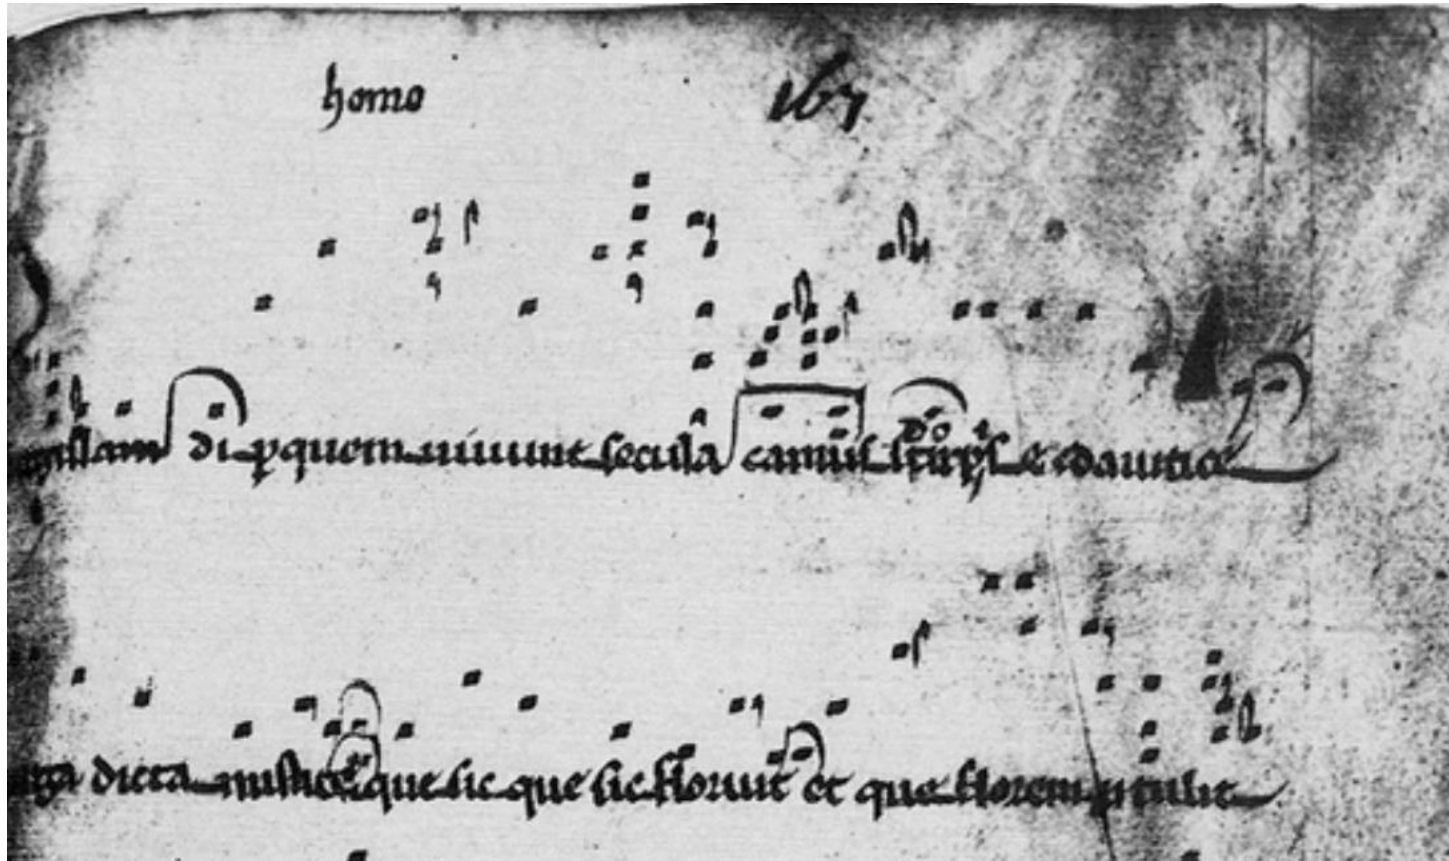 homo 167
di p quem uiuunt secula camus stirps e dauitica
uga dicta mistice que sic que sic floruit et que florem ptulit